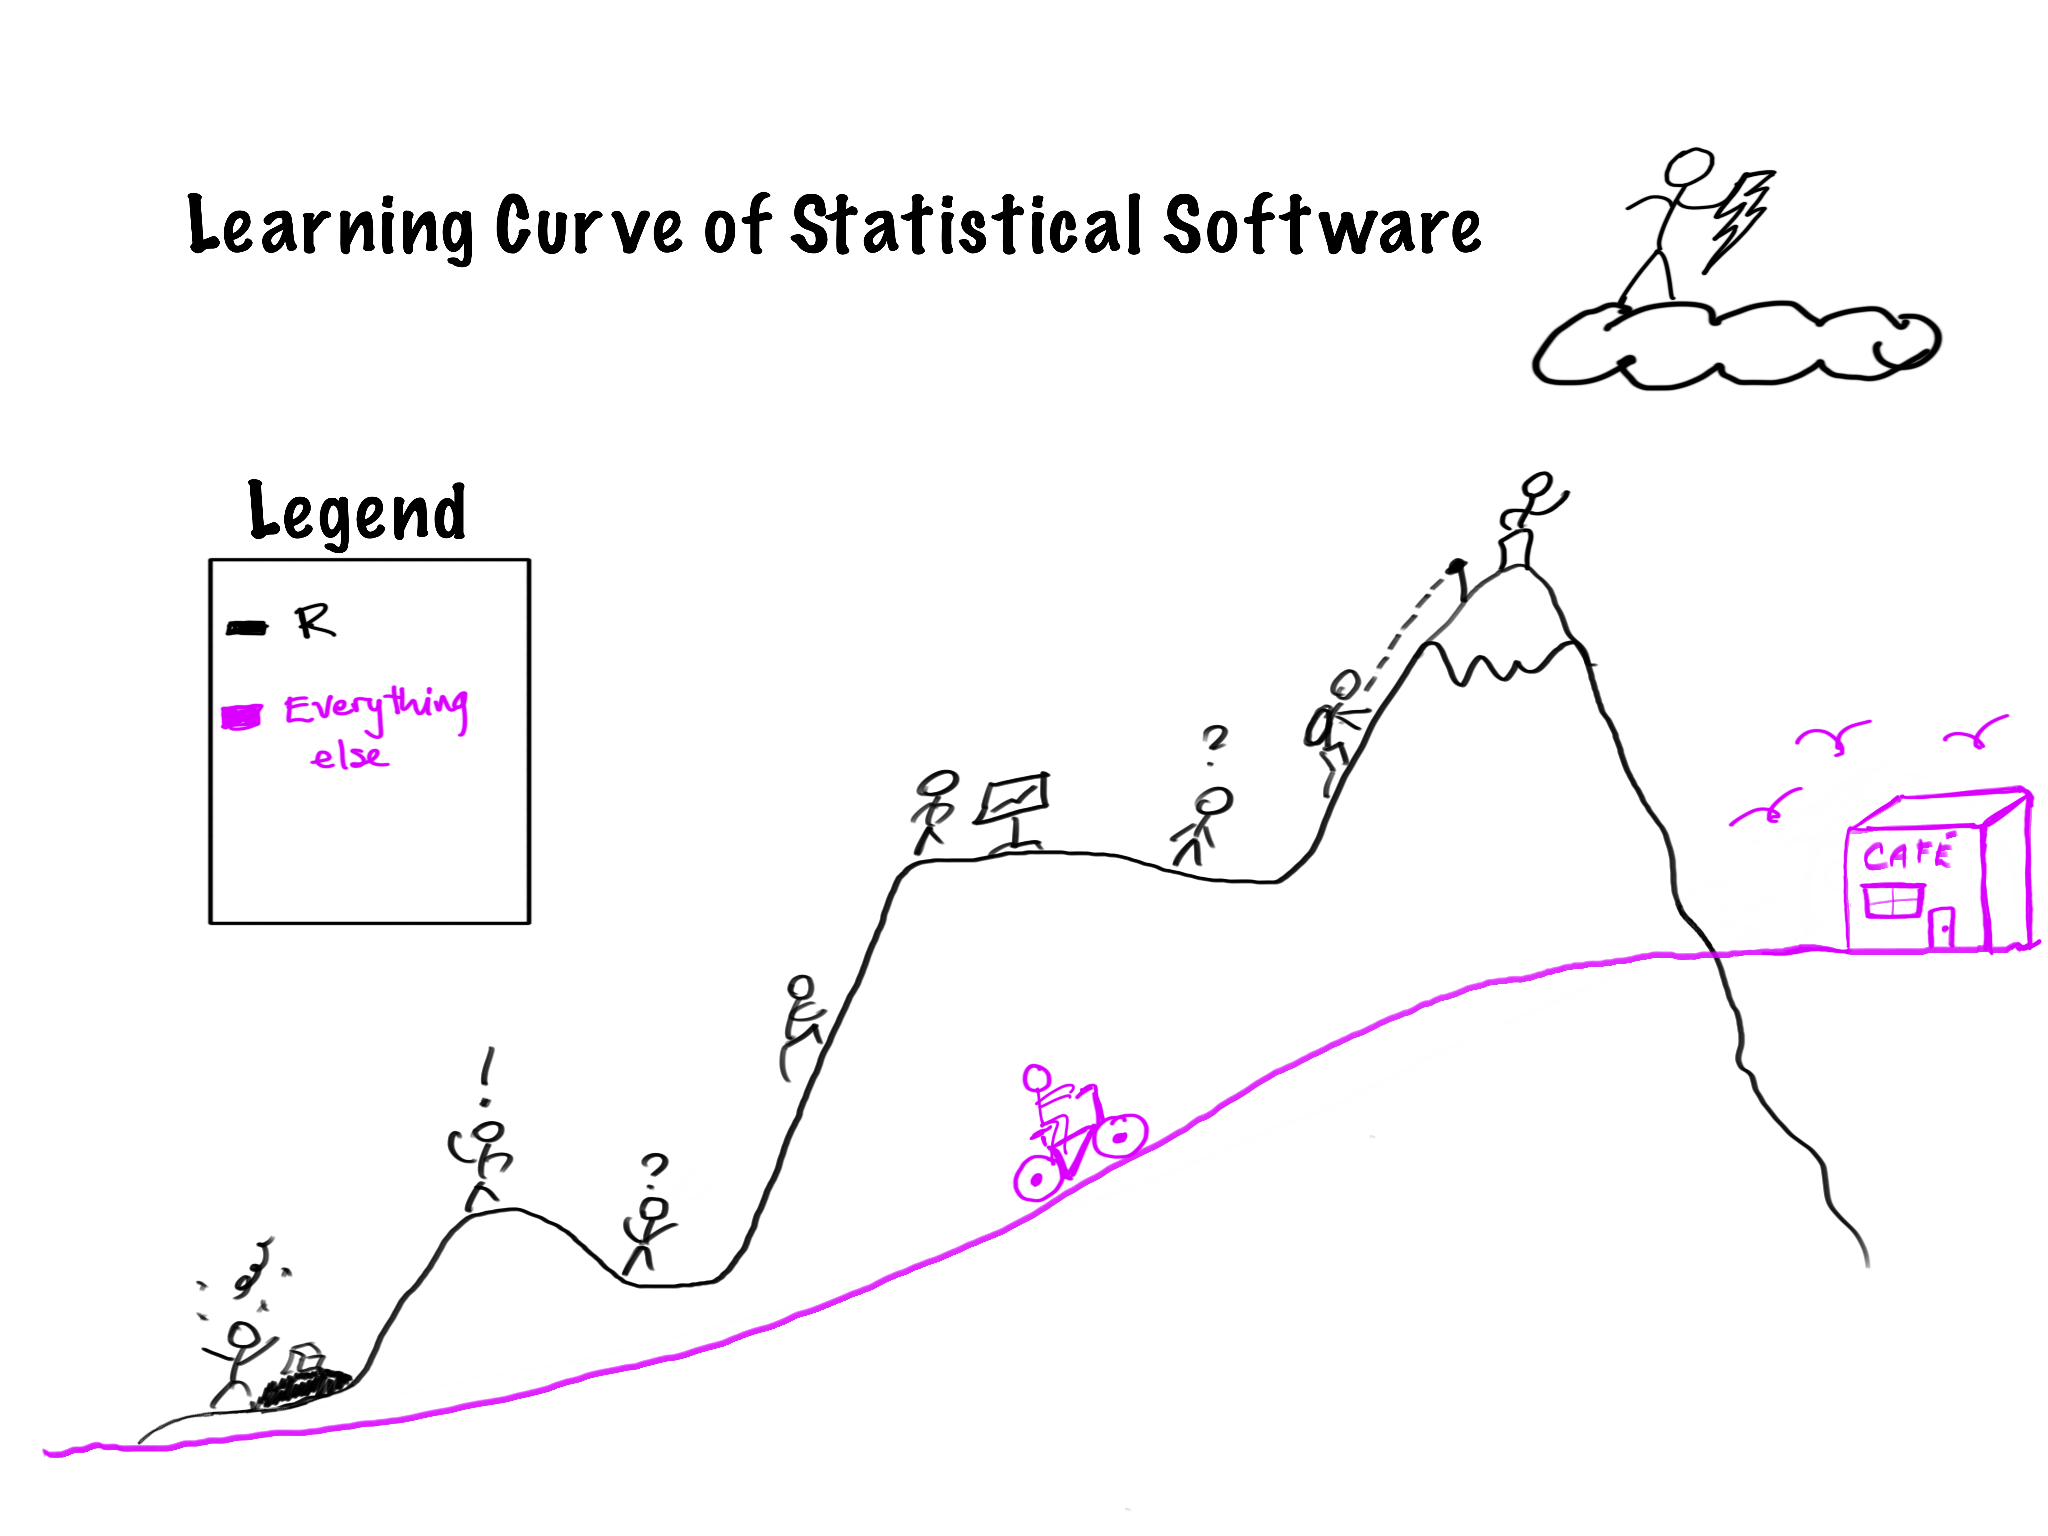 Learning Curve of Statistical Software
Legend
R
Everything
else
!
?
?
CAFE